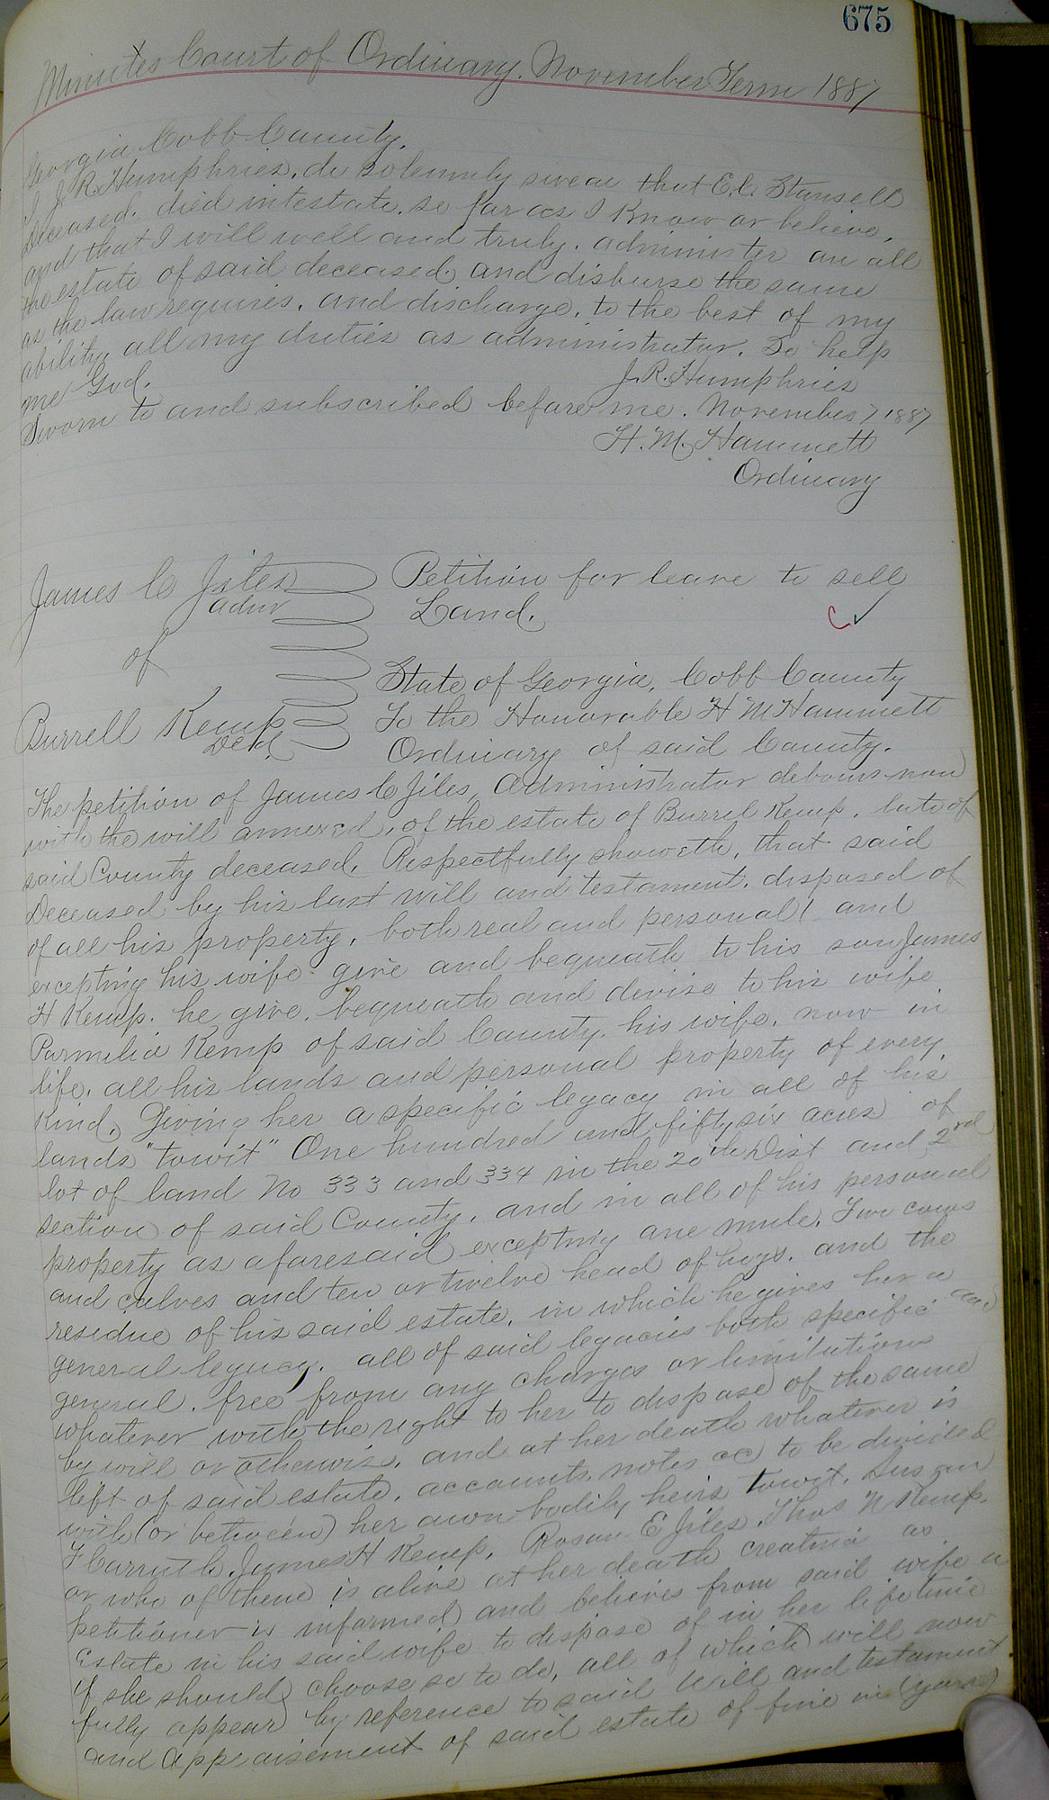 675
Minutes Court of Ordinary. November Term 1887
Georgia Cobb County.
I J. R. Humphries, do solemnly swear that E. C. Stansell
Deceased. died intestate. so far as I know or believe,
and that I will well and truly. administer on all
the estate of said deceased, and disburse the same
as the law requires. and discharge. to the best of my
ability, all my duties as administrator. So help
me God.
J. R. Humphries
Sworn to and subscribed before me. November 7 1887
H. M. Hammett
Ordinary
James C Jiles
admr
of
Burrell Kemp
Decd.
Petition for leave to sell
Land.
State of Georgia, Cobb County
To the Honorable H M Hammett
Ordinary of said County.
The petition of James C Jiles, Administrator debonis non
with the will annexed, of the estate of Burrel Kemp. late of
said County deceased. Respectfully showeth, that said
Deceased by his last will and testament. disposed of
of all his property, both real and personal, and
excepting his wife give and bequeath to his son James
H Kemp. he give. bequeath and devise to his wife
Parmelia Kemp of said County. his wife. now in
life. all his lands and personal property of every
kind, Giving her a specific legacy in all of his
lands "towit" One hundred and fifty six acres of
lot of land No 333 and 334 in the 20th Dist and 2nd
section of said County, and in all of his personal
property as aforesaid excepting one mule. Two cows
and calves and ten or twelve head of hogs. and the
residue of his said estate, in which he gives her a
general legacy. all of said legacies both specific and
general. free from any charges or limitations
whatever with the right to her to dispose of the same
by will or otherwise. and at her death whatever is
left of said estate, accounts, notes &c to be divided
with (or between) her own bodily heirs towit. Susan
F Carruth. James H Kemp. Rosan E Jiles. Thos N Kemp.
or who of them is alive at her death creating as
petitioner is informed and believes from said wife a
Estate in his said wife to dispose of in her lifetime
if she should choose so to do, all of which will now
fully appear by reference to said Will and testament
and Appraisement of said estate of five in (years)